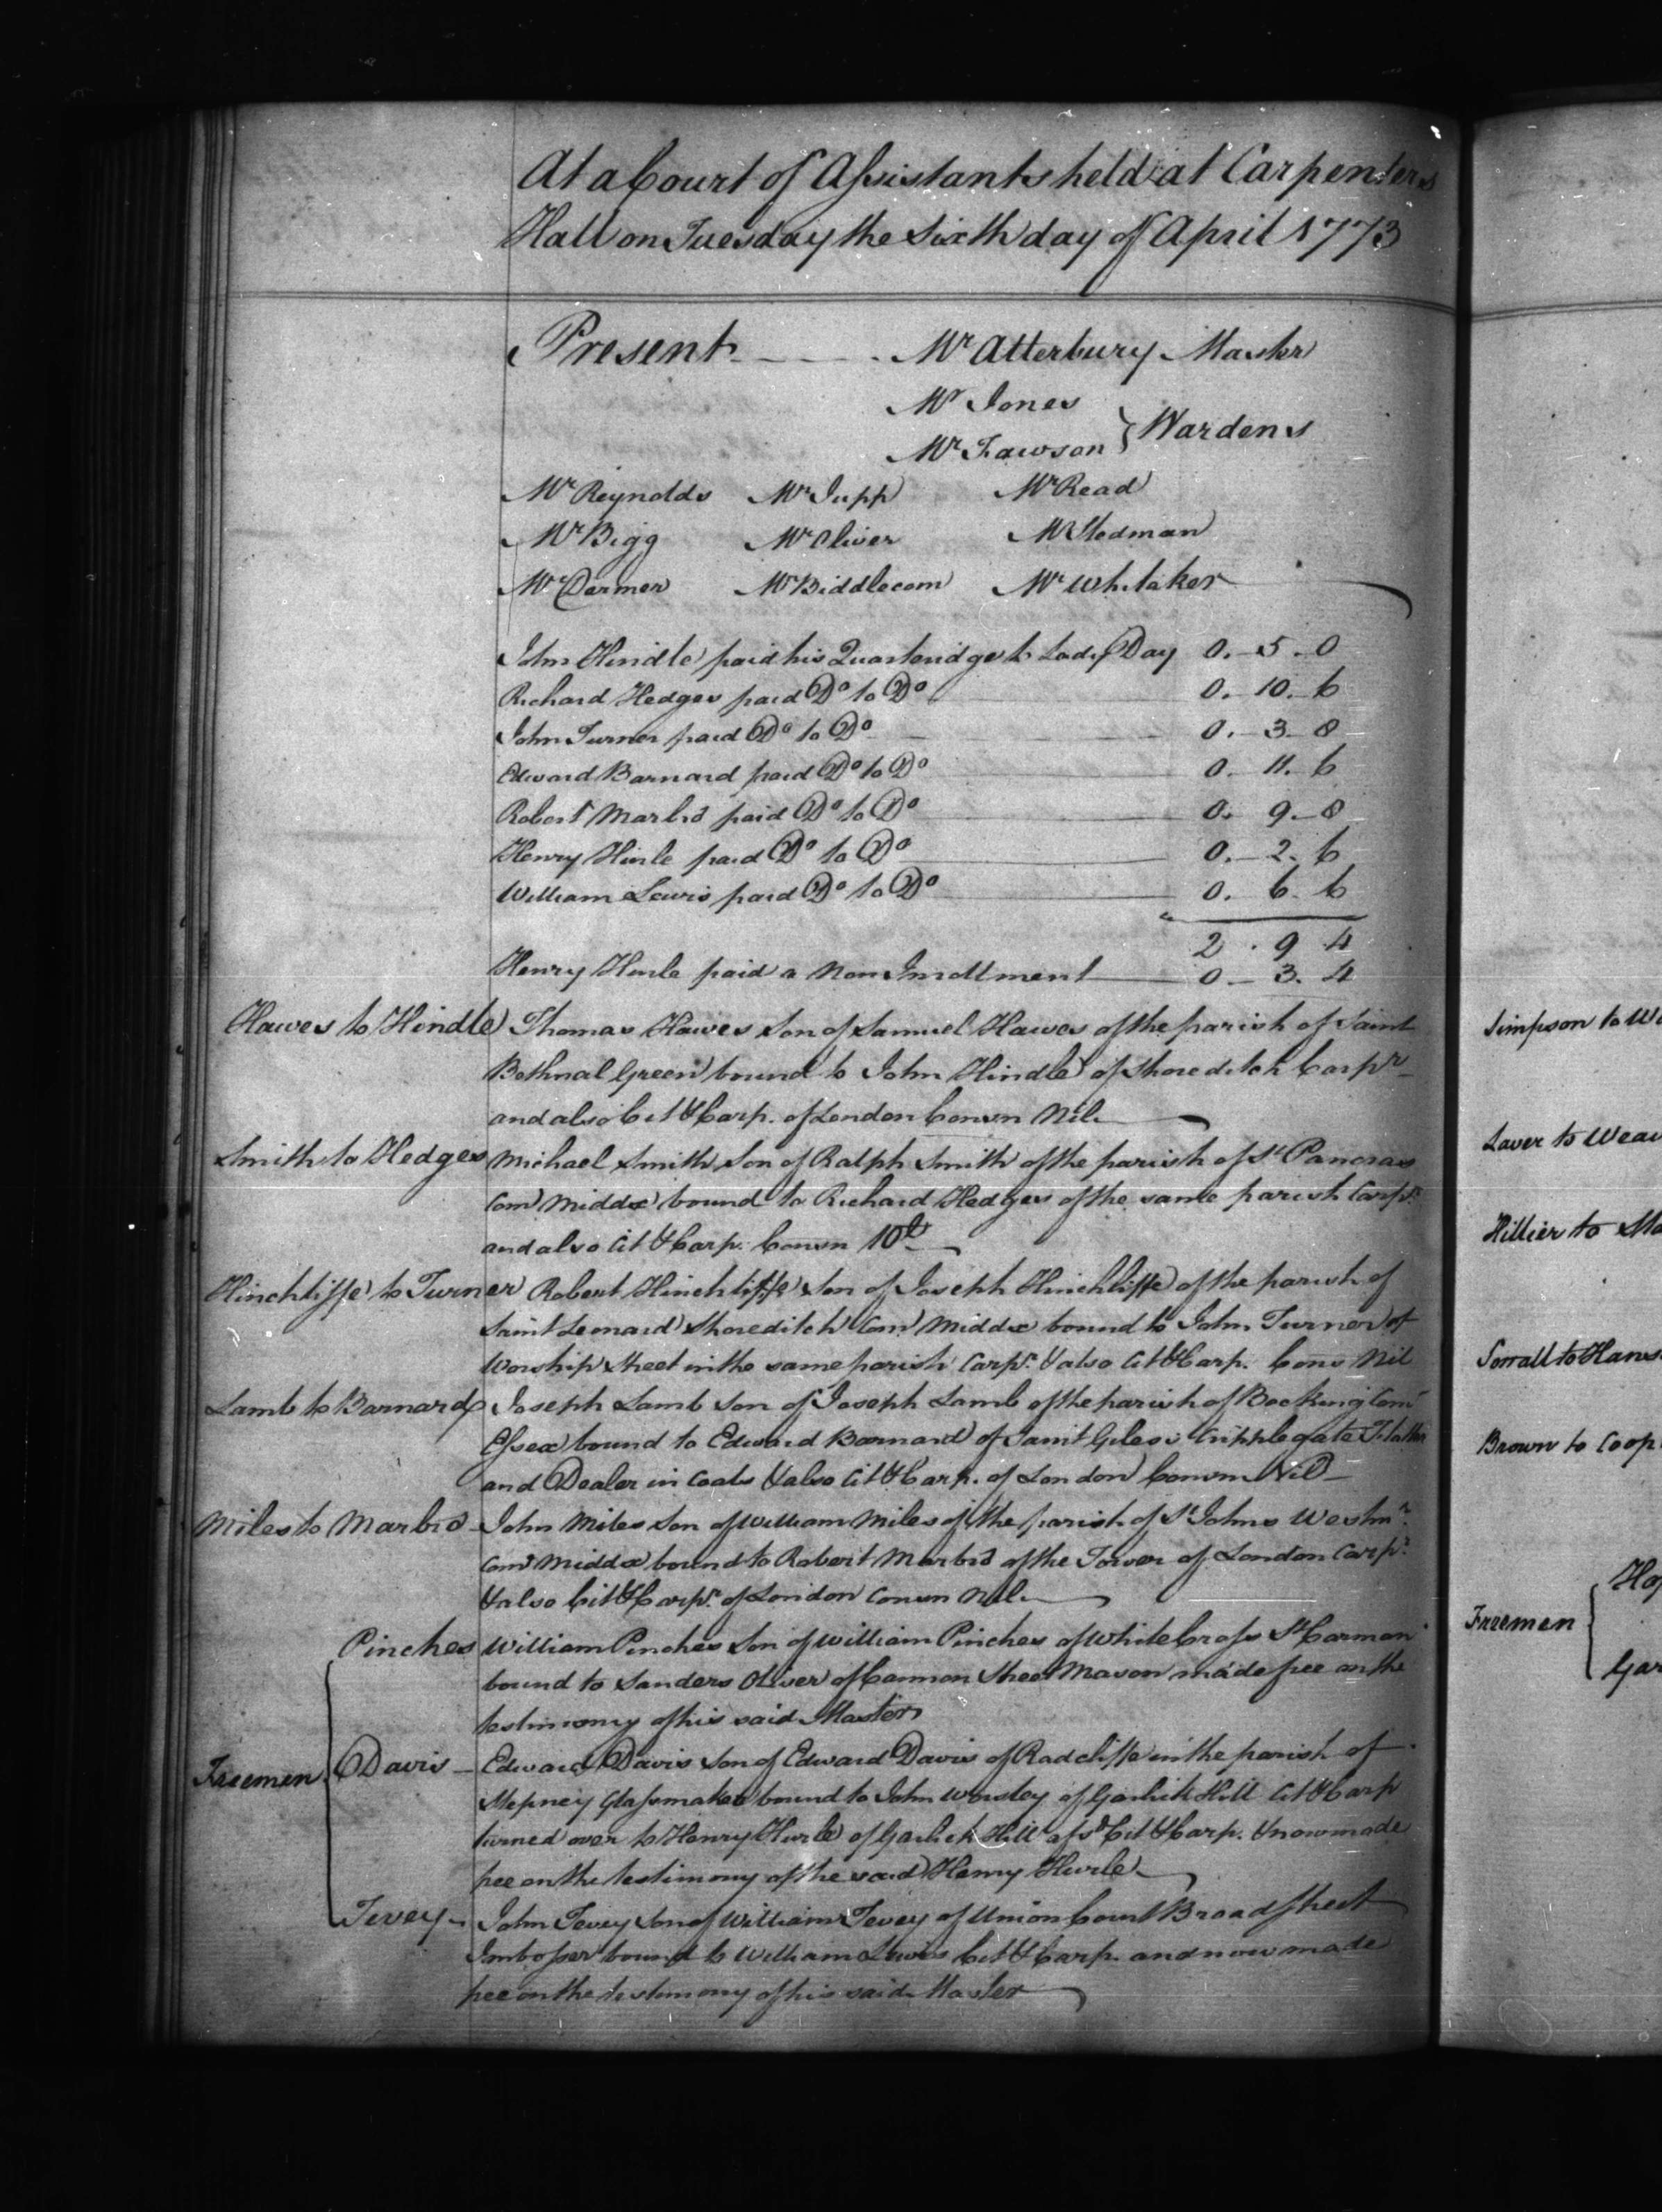 At a Court of Assistants held at Carpenters
Hall on Tuesday the Sixth day of April 1773
Present Mr Atterbury Master
Mr Jones
Mr Lawson } Wardens
Mr Reynolds Mr Jupp Mr Read
Mr Bigg Mr Oliver Mr Stedman
Mr Dermer Mr Biddlecom Mr Whitaker
John Hindle paid his Quarteridge to Lady Day 0. 5. 0
Richard Hedges paid Do to Do 0. 10. 6
John Turner paid Do to Do 0. 3. 8
Edward Barnard paid Do to Do 0. 11. 6
Robert Marbrd paid Do to Do 0. 9. 8
Henry Hurle paid Do to Do 0. 2. 6
William Lewis paid Do to Do 0. 6. 6
2. 9. 4
Henry Hurle paid a Non Inrollment 0. 3. 4
Hawes to Hindle Thomas Hawes Son of Samuel Hawes of the parish of Saint
Bethnal Green bound to John Hindle of Shoreditch Carpr
and also Cit & Carp. of London Conson Nil
Smith to Hedges Michael Smith Son of Ralph Smith of the parish of St Pancras
Com Middx bound to Richard Hedges of the same parish Carpr
and also Cit & Carp. Conson 10l
Hinchliffe to Turner Robert Hinchliffe Son of Joseph Hinchliffe of the parish of
Saint Leonard Shoreditch Com Middx bound to John Turner of
Worship Street in the same parish Carpr & also Cit & Carp. Cons Nil
Lamb to Barnard Joseph Lamb Son of Joseph Lamb of the parish of Bocking Com
Essex bound to Edward Barnard of Saint Giles Cripplegate
and Dealer in Coals & also Cit & Carp. of London Conson Nil
Miles to Marbrd John Miles Son of William Miles of the parish of St Johns Westmr
Com Middx bound to Robert Marbrd of the Tower of London Carpr
& also Cit & Carpr of London Conson Nil
Pinches William Pinches Son of William Pinches of White Cross St Carman
bound to Sanders Oliver of Cannon Street Mason made free on the
testimony of his said Master
Freemen Davis Edward Davis Son of Edward Davis of Radcliffe in the parish of
Stepney Glassmaker bound to John Worsley of Garlick Hill Cit & Carp
turned over to Henry Hurle of Garlick Hill afsd Cit & Carp. & now made
free on the testimony of the said Henry Hurle
Tevey John Tevey Son of William Tevey of Union Court Broad Street
Imbosser bound to William Lewis Cit & Carp. and now made
free on the testimony of his said Master
Simpson to
Laver to
Hillier to
Sorrall to
Brown to
Freemen {